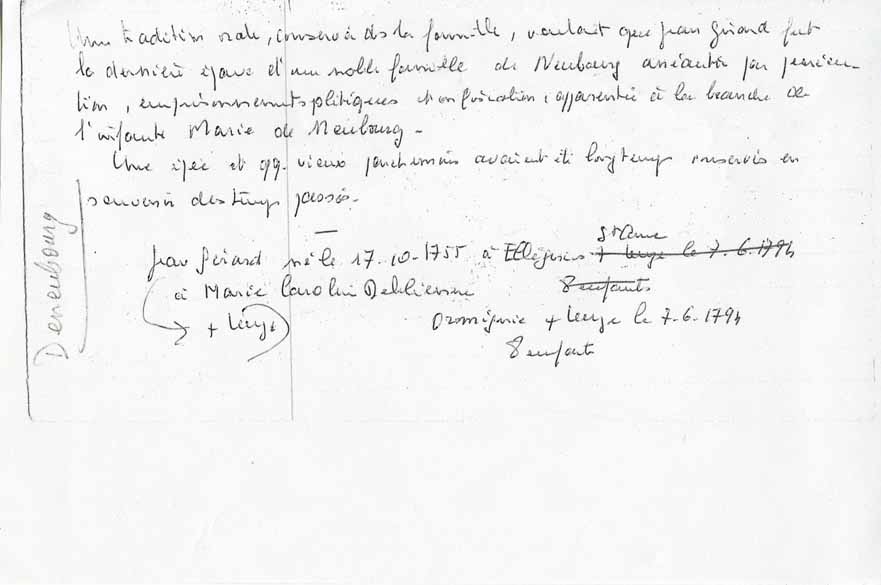 Une tradition orale, conservée ds la famille, voulait que Jean Girard fut
la dernière épave d'une noble famille de Neubourg anéantie par persécu-
tion, emprisonnements politiques et confiscation, apparentée à la branche de
l'infante Marie de Neubourg -
Une épée et qq. vieux parchemins avaient été longtemps conservés en
souvenir des temps passés.
Deneubourg
St Anne
Jean Gérard né le 17-10-1755 à Ellignies + Leuze le 7.6.1794
à Marie Caroline 8 enfants
+ Leuze + Leuze le 7-6-1794
8 enfants